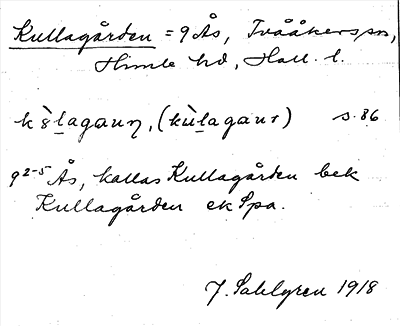 Kullagården = 9 Ås, Tvååkers sn,
Himle hd, Hall. l.
kùlagaun, (kùlagaur) s. 86
9²⁻⁵ Ås, kallas Kullagården bek
Kullagården ek Spa.
J. Sahlgren 1918